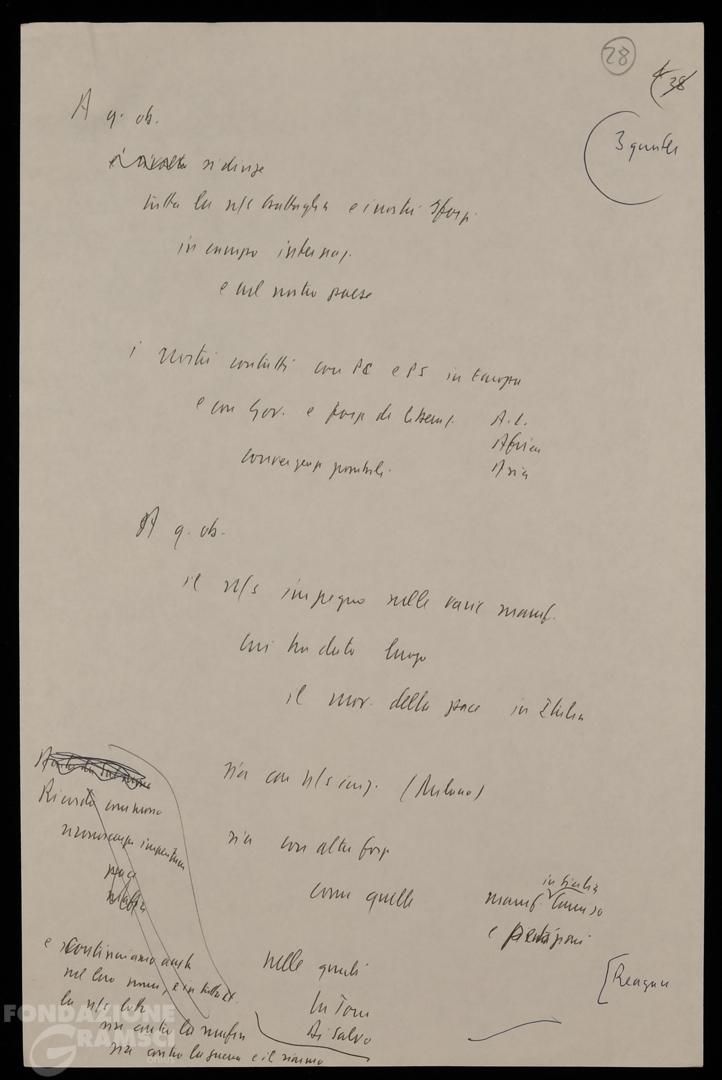 28
3 quinter
A q. ob.
si dirige
tutta la n/s battaglia e i nostri sforzi
in campo internaz.
e nel nostro paese
i nostri contatti con PC e PS in Europa
e con Gov. e forze di liberaz. A.L.
Africa
convergenze possibili. Asia
A q. ob.
il n/s impegno nelle varie manif.
cui ha dato luogo
il mov. della pace in Italia
sia con n/s iniz. (Milano)
Ricordo commosso
riconoscenza imperitura
pace
mafia
sia con altre forze
in Sicilia
come quelle manif. Comiso
e petizioni
e continuiamo anche
nel loro nome, e in tutta It.
la n/s lotta
sia contro la mafia
sia contro la guerra e il riarmo
nelle quali
La Torre
Di Salvo
[Reagan
FONDAZIONE
GRAMSCI
ONLUS